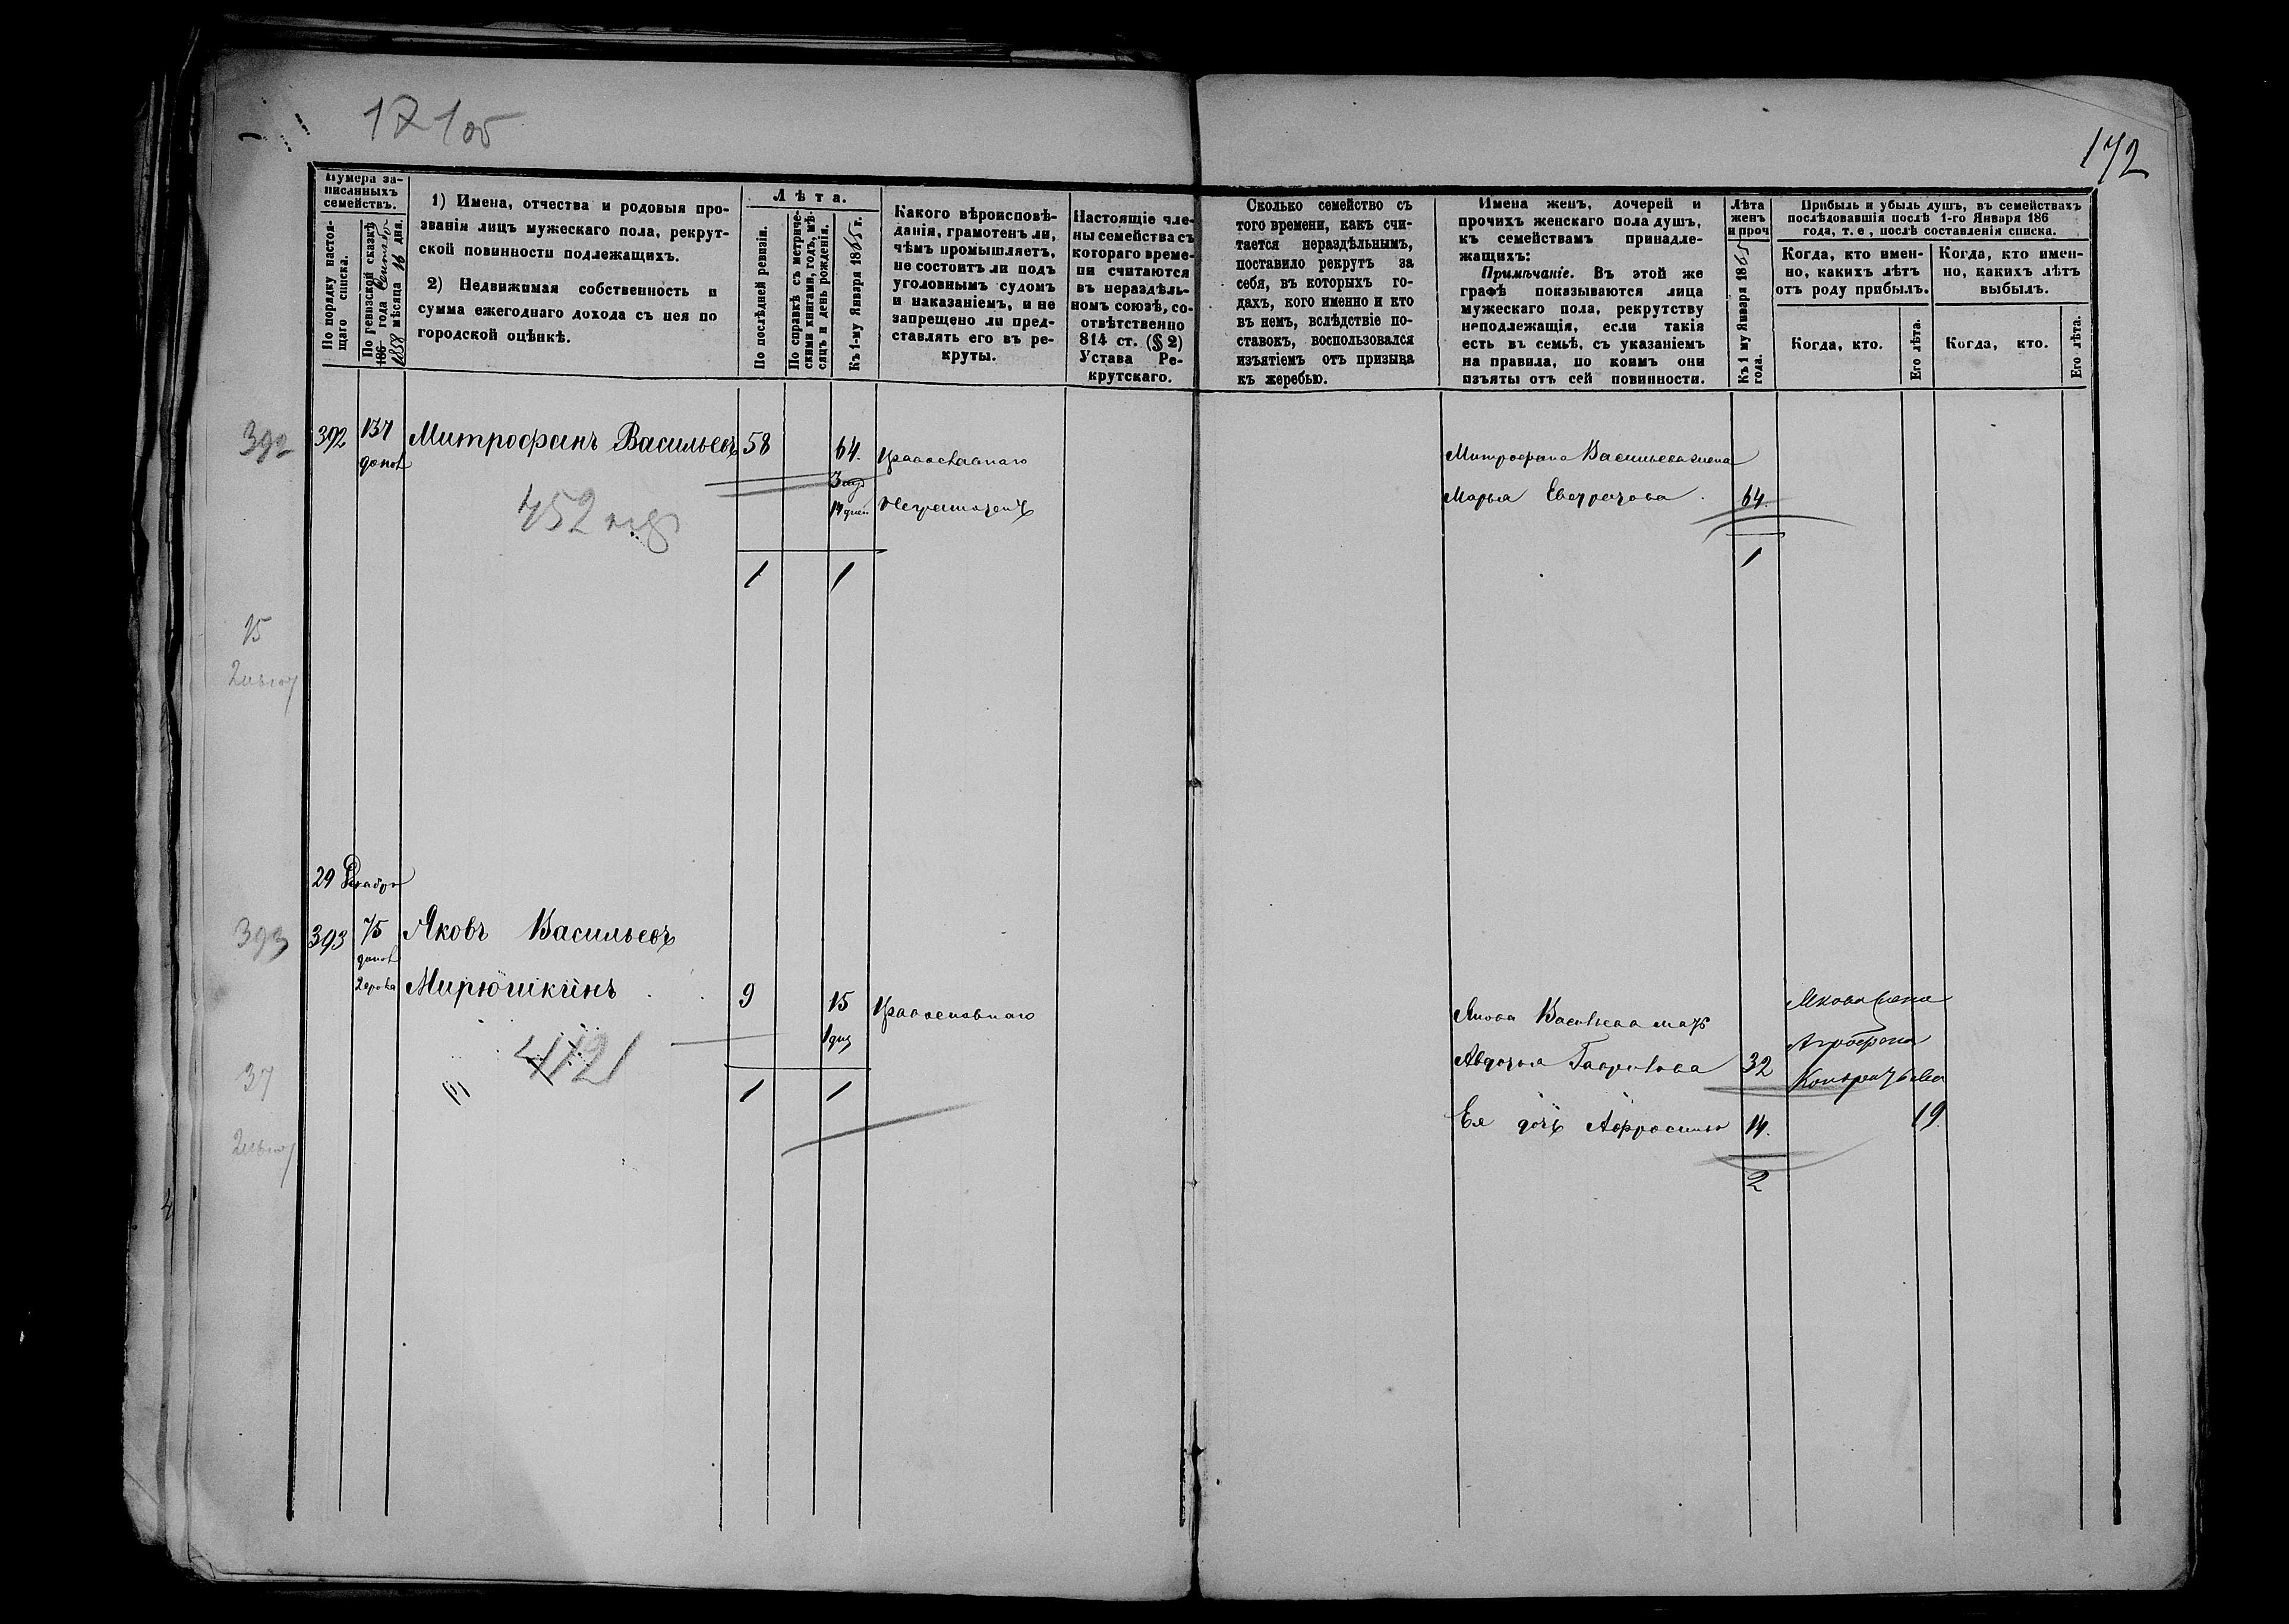 172
Нумера за-
писанныхъ
семействъ.
По порядку настоя-
щаго списка.
По ревизской сказкѣ
186 года
1858 мѣсяца 16 дня.
1) Имена, отчества и родовыя про-
званія лицъ мужескаго пола, рекрут-
ской повинности подлежащихъ.
2) Недвижимая собственность и
сумма ежегоднаго дохода съ нея по
городской оцѣнкѣ.
Лѣта.
По послѣдней ревизіи.
По справкѣ съ метриче-
скими книгами, годъ, мѣ-
сяцъ и день рожденія.
Къ 1-му Января 1865 г.
Какого вѣроисповѣ-
данія, грамотенъ ли,
чѣмъ промышляетъ,
не состоитъ ли подъ
уголовнымъ судомъ
и наказаніемъ, и не
запрещено ли пред-
ставлять его въ ре-
круты.
Настоящіе чле-
ны семейства съ
котораго време-
ни считаются
въ нераздѣль-
номъ союзѣ, со-
отвѣтственно
814 ст. (§ 2)
Устава Ре-
крутскаго.
Сколько семейство съ
того времени, какъ счи-
тается нераздѣльнымъ,
поставило рекрутъ за
себя, въ которыхъ го-
дахъ, кого именно и кто
въ немъ, вслѣдствіе по-
ставокъ, воспользовался
изъятіемъ отъ призыва
къ жеребью.
Имена женъ, дочерей и
прочихъ женскаго пола душъ,
къ семействамъ принадле-
жащихъ:
Примѣчаніе. Въ этой же
графѣ показываются лица
мужескаго пола, рекрутству
неподлежащія, если такія
есть въ семьѣ, съ указаніемъ
на правила, по коимъ они
изъяты отъ сей повинности.
Лѣта
женъ
и проч
Къ 1 му Января 1865
года.
Прибыль и убыль душъ, въ семействахъ
послѣдовавшія послѣ 1-го Января 186
года, т. е, послѣ составленія списка.
Когда, кто имен-
но, какихъ лѣтъ
отъ роду прибылъ.
Когда, кто имен-
но, какихъ лѣтъ
выбылъ.
Когда, кто.
Его лѣта.
Когда, кто.
Его лѣта.
392 392 137 Митрофанъ Васильевъ 58 64. Православнаго
допол
14 дней Неграмотенъ
452
Митрофана Васильева жена
Марья 64.
1 1
1
15
29 Декабря
393 393 75 Яковъ Васильевъ
допол
Мирюшкинъ 9 15 Православнаго
4121
1 1
37
Якова Васильева мать
Авдотья Гаврилова 32
Ея дочь Афросинья 14.
2
Якова жена
Агрофена
19